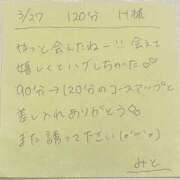 3/27 120分 H様
やっと会えたねー!! 会えて
嬉しくてハグしちゃった
90分→120分のコースアップと
差し入れありがとう
また誘って下さい(o'∀'o)
みと